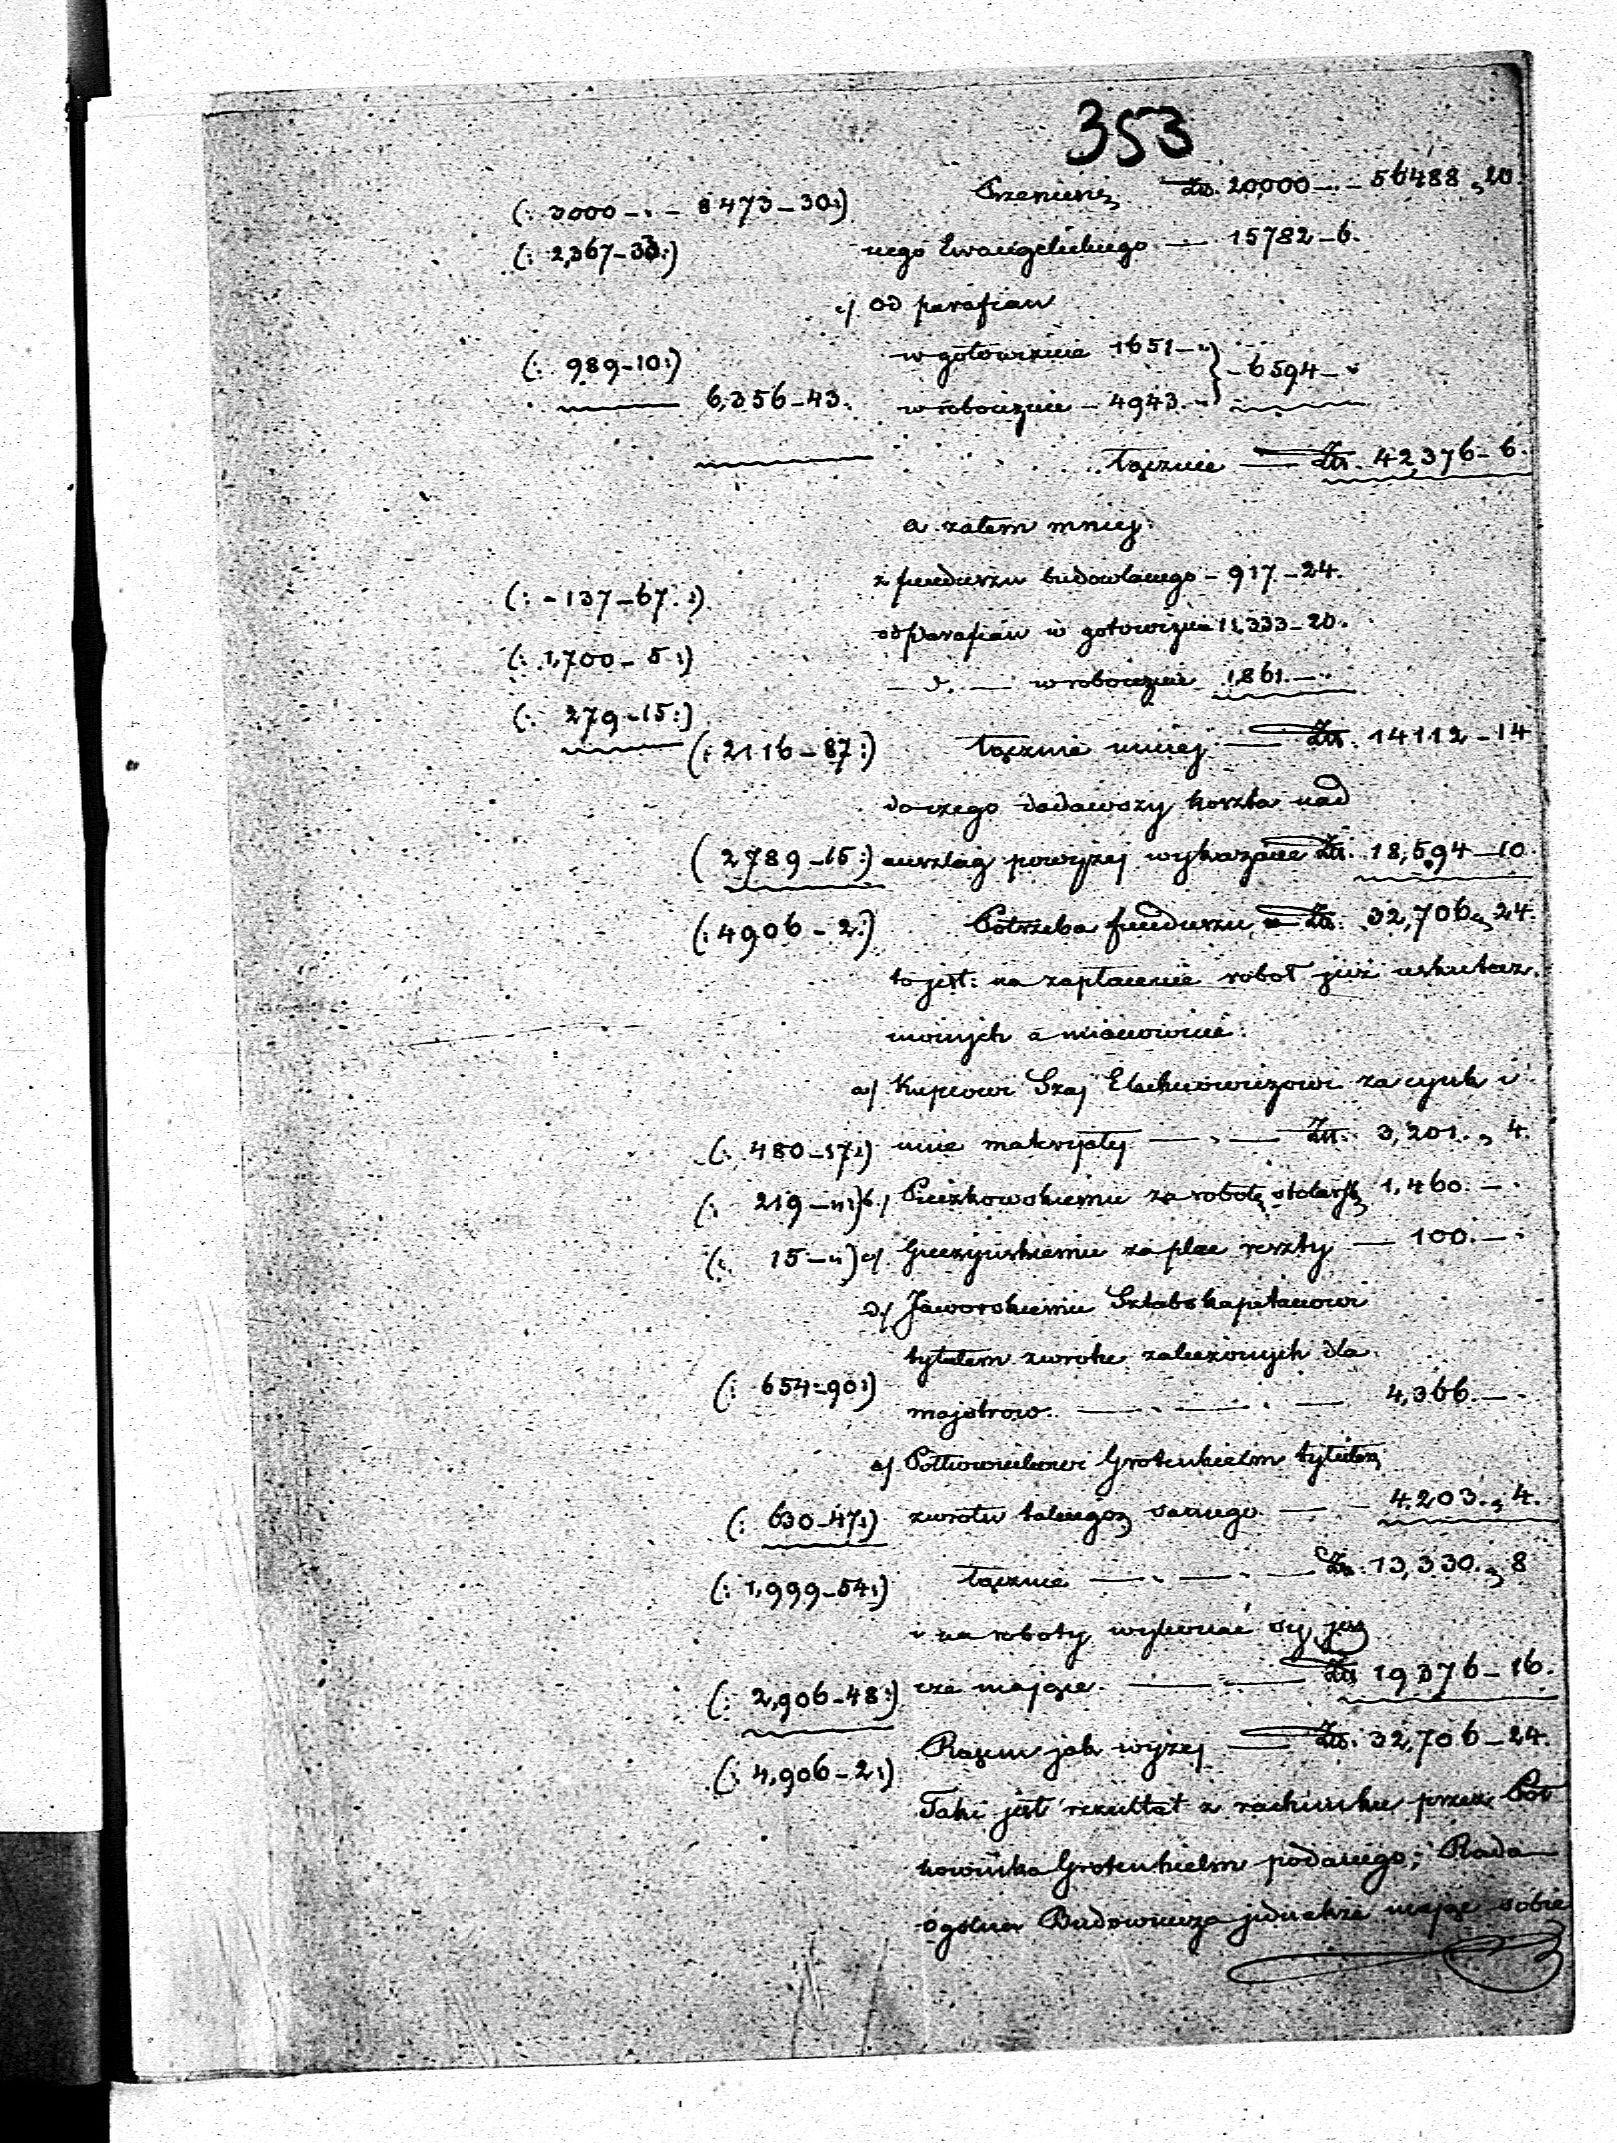 353
(: 3000 – . – 8473 – 30 :) Przeniesie Złp. 20,000 – . – 56488 „ 20.
(: 2,367 – 33 :) nego Ewangelickiego — 15782 – 6.
c/ od parafian
(: 989 – 10 :) w gotowiznie 1651 – „ } – 6594 – „
6,356 – 43. w robociznie – 4943. – „
łącznie — Złp. 42,376 – 6.
a zatem mniej:
(: – 137 – 67. :) z funduszu budowlanego – 917 – 24.
(: 1,700 – 5 :) od Parafian w gotowiznie 11,333 – 20.
(: 279 – 15 :) — d. — w robociznie 1,861. – .
(: 2116 – 87 :) łącznie mniej — Złp. 14112 – 14
do czego dodawszy koszta nad
(: 2789 – 15 :) anszlag powyżej wykazane Złp. 18,594 – 10.
(: 4906 – 2 :) Potrzeba funduszu Złp. 32,706 „ 24.
to jest: na zapłacenie robot już uskutecz.
nionych a mianowicie:
a/ Kupcowi Szaj za cynk i
(: 480 – 17 :) inne materyały — . — Złp. 3,201. „ 4.
(: 219 – „ :) b/ Pieczkowskiemu za robotę stolarską 1,460. – .
(: 15 – „ ) c/ za plac reszty — 100. – .
d/ Jaworskiemu Sztabskapitanowi
tytułem zwrotu zaliczonych dla
(: 654 – 90 :) majstrow. — . — . — 4,366. – .
e/ Półkownikowi Grotenhielm tytułem
(: 630 – 47 :) zwrotu takiegoż samego — – 4.203. „ 4.
(: 1,999 – 54 :) łącznie — . — . — Złp. 13,330. „ 8
i na roboty wykonać się jesz
(: 2,906 – 48 :) cze mające. — — Złp. 19,376 – 16.
(: 4,906 – 2 :) Razem jak wyżej — Złp. 32,706 – 24.
Taki jest rezultat z rachunku przez Pół
kownika Grotenhielm podanego; Rada
Ogólna Budownicza jednakże mając sobie